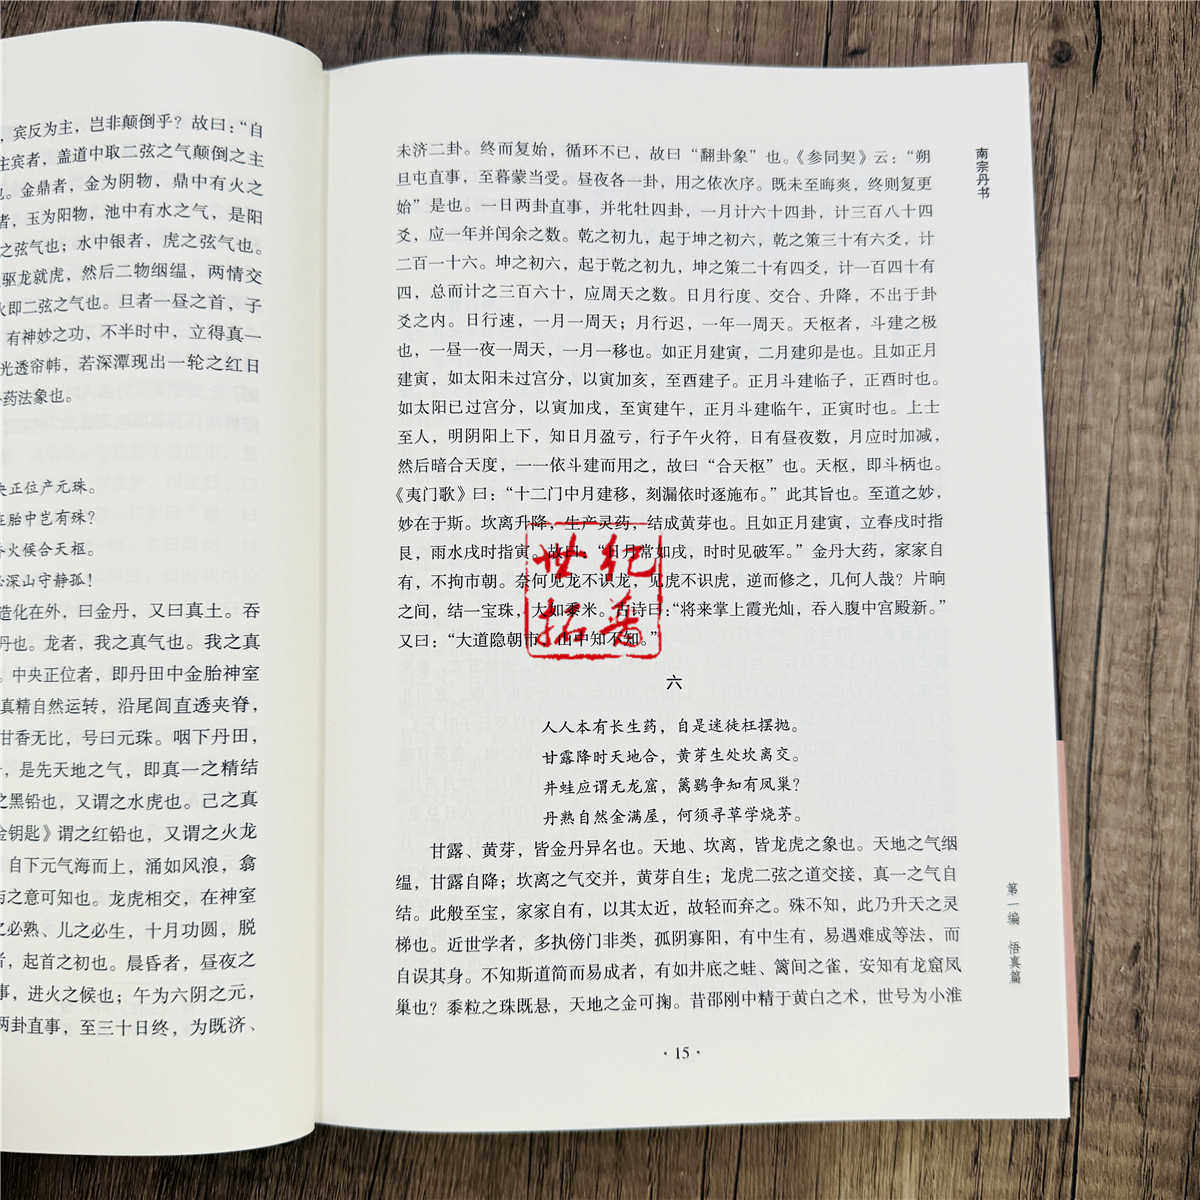 ，宾反为主，岂非颠倒乎？故曰：“自
主宾者，盖道中取二弦之气颠倒之主
也。金鼎者，金为阴物，鼎中有火之
者，玉为阳物，池中有水之气，是阳
之弦气也；水中银者，虎之弦气也。
驱龙就虎，然后二物绸缊，两情交
火即二弦之气也。旦者一昼之首，子
有神妙之功，不半时中，立得真一
光透帘帏，若深潭现出一轮之红日
药法象也。
央正位产元珠。
胎中岂有殊？
火候合天枢。
深山守静孤！
造化在外，曰金丹，又曰真土。吞
丹也。龙者，我之真气也。我之真
。中央正位者，即丹田中金胎神室
真精自然运转，沿尾闾直透夹脊，
甘香无比，号曰元珠。咽下丹田，
，是先天地之气，即真一之精结
之黑铅也，又谓之水虎也。己之真
金钥匙》谓之红铅也，又谓之火龙
自下元气海而上，涌如风浪，翕
之意可知也。龙虎相交，在神室
之必熟、儿之必生，十月功圆，脱
者，起首之初也。晨昏者，昼夜之
事，进火之候也；午为六阴之元，
两卦直事，至三十日终，为既济、
未济二卦。终而复始，循环不已，故曰“翻卦象”也。《参同契》云：“朔
旦屯直事，至暮蒙当受。昼夜各一卦，用之依次序。既未至晦爽，终则复更
始”是也。一日两卦直事，并牝牡四卦，一月计六十四卦，计三百八十四
爻，应一年并闰余之数。乾之初九，起于坤之初六，乾之策三十有六爻，计
二百一十六。坤之初六，起于乾之初九，坤之策二十有四爻，计一百四十有
四，总而计之三百六十，应周天之数。日月行度、交合、升降，不出于卦
爻之内。日行速，一月一周天；月行迟，一年一周天。天枢者，斗建之极
也，一昼一夜一周天，一月一移也。如正月建寅，二月建卯是也。且如正月
建寅，如太阳未过宫分，以寅加亥，至酉建子。正月斗建临子，正酉时也。
如太阳已过宫分，以寅加戌，至寅建午，正月斗建临午，正寅时也。上士
至人，明阴阳上下，知日月盈亏，行子午火符，日有昼夜数，月应时加减，
然后暗合天度，一一依斗建而用之，故曰“合天枢”也。天枢，即斗柄也。
《夷门歌》曰：“十二门中月建移，刻漏依时逐施布。”此其旨也。至道之妙，
妙在于斯。坎离升降，生产灵药，结成黄芽也。且如正月建寅，立春戌时指
艮，雨水戌时指寅。故曰：“日月常如戌，时时见破军。”金丹大药，家家自
有，不拘市朝。奈何见龙不识龙，见虎不识虎，逆而修之，几何人哉？片晌
之间，结一宝珠，大如黍米。古诗曰：“将来掌上霞光灿，吞入腹中宫殿新。”
又曰：“大道隐朝市，山中知不知。”
六
人人本有长生药，自是迷徒枉摆抛。
甘露降时天地合，黄芽生处坎离交。
井蛙应谓无龙窟，篱鹦争知有凤巢？
丹熟自然金满屋，何须寻草学烧茅。
甘露、黄芽，皆金丹异名也。天地、坎离，皆龙虎之象也。天地之气绸
缊，甘露自降；坎离之气交并，黄芽自生；龙虎二弦之道交接，真一之气自
结。此般至宝，家家自有，以其太近，故轻而弃之。殊不知，此乃升天之灵
梯也。近世学者，多执傍门非类，孤阴寡阳，有中生有，易遇难成等法，而
自误其身。不知斯道简而易成者，有如井底之蛙、篱间之雀，安知有龙窟凤
巢也？黍粒之珠既悬，天地之金可掬。昔邵刚中精于黄白之术，世号为小淮
南宗丹书
第一编 悟真篇
·15·
世纪
拓普